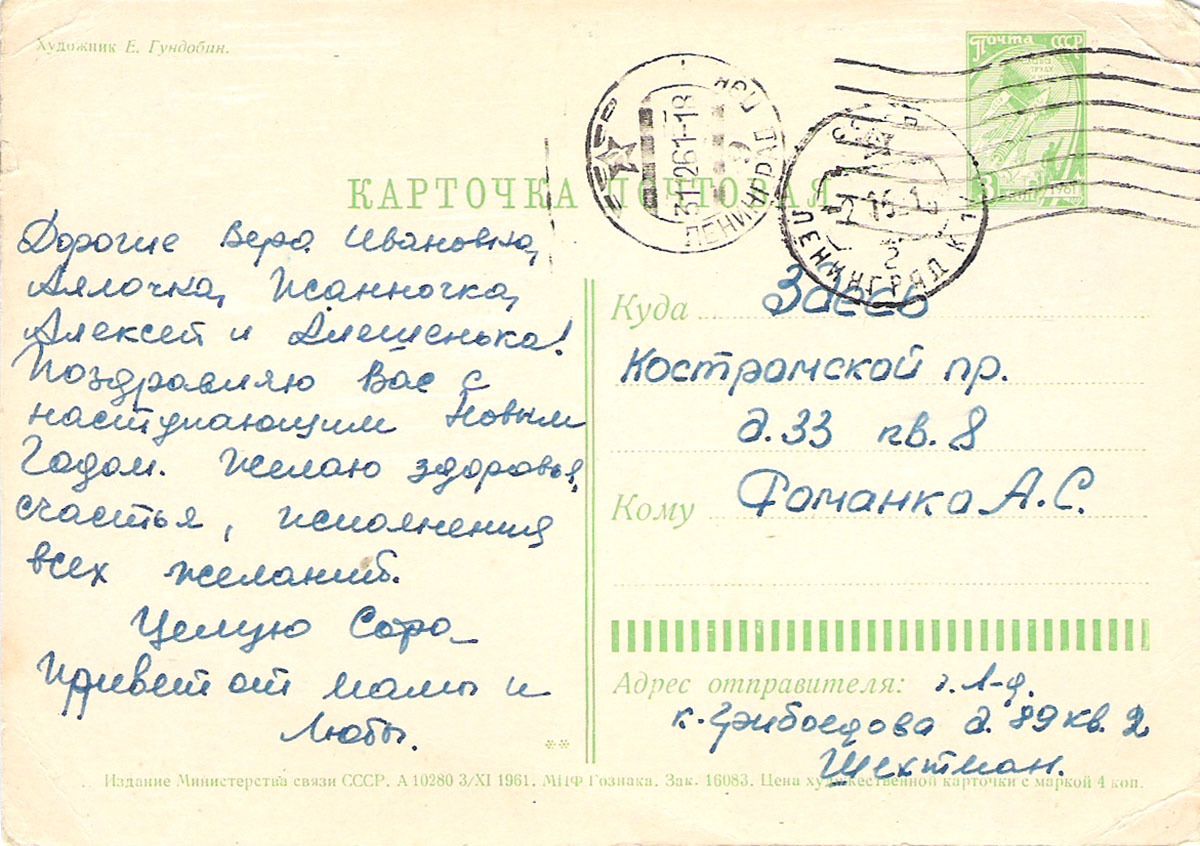 Художник Е. Гундобин.
Почта СССР
КАРТОЧКА ПОЧТОВАЯ
31 12 61-18
ЛЕНИНГРАД
ЛЕНИНГРАД
2
Дорогие Вера Ивановна,
Лялочка, Жанночка,
Алексей и Алешенька!
Поздравляю Вас с
наступающим Новым
Годом. Желаю здоровья,
счастья, исполнения
всех желаний.
Целую Сара
Привет от мамы и
Любы.
Куда Здесь
Костромской пр.
д. 33 кв. 8
Кому Фоманко А.С.
Адрес отправителя: г. Л-д.
к. Грибоедова д. 89 кв. 2
Шехтман.
Издание Министерства связи СССР. А 10280 3/XI 1961. МПФ Гознака. Зак. 16083. Цена художественной карточки с маркой 4 коп.